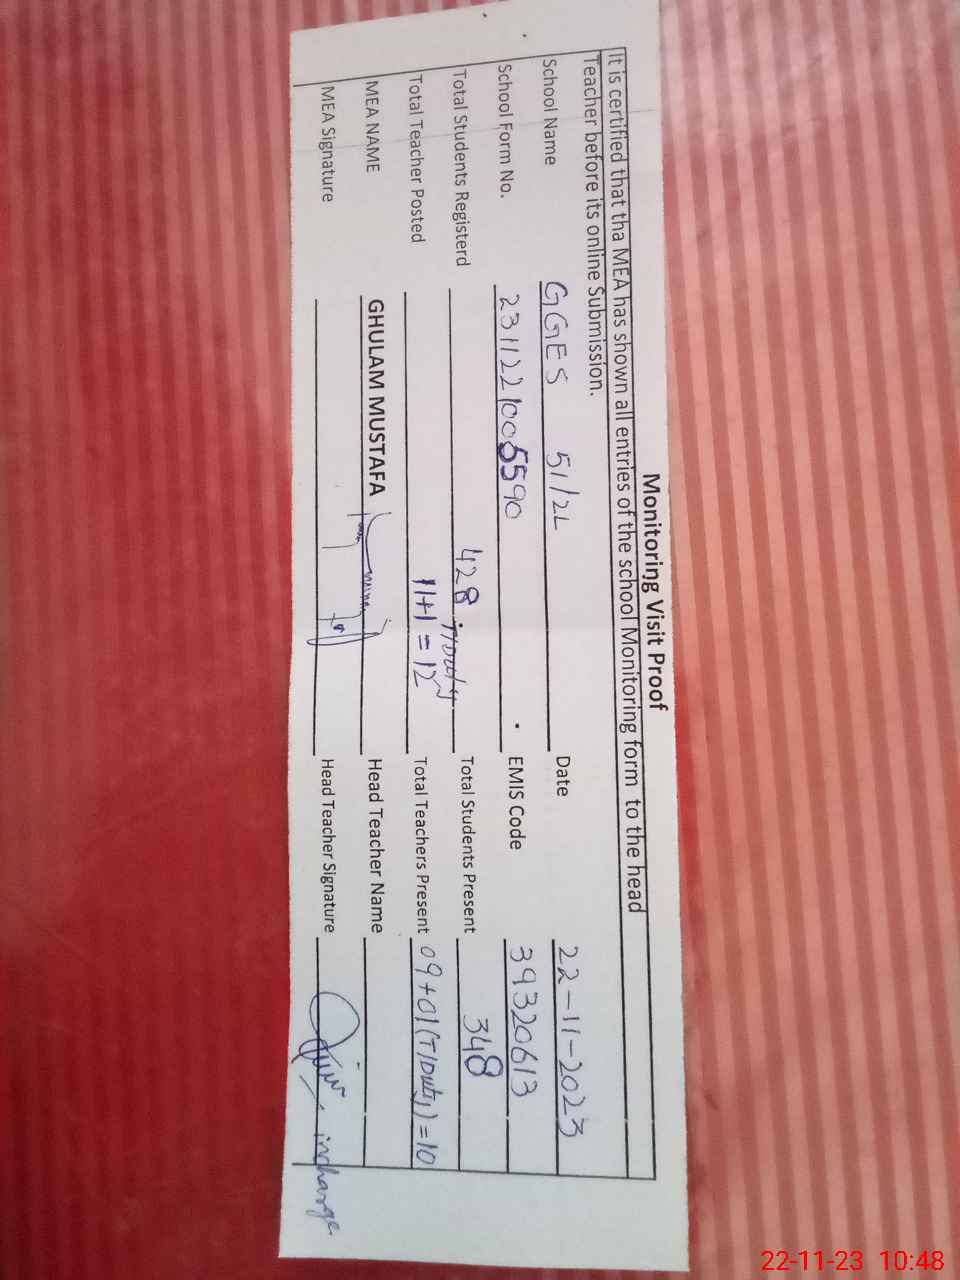 Monitoring Visit Proof
It is certified that tha MEA has shown all entries of the school Monitoring form to the head
Teacher before its online Submission.
School Name GGES 51/2L Date 22-11-2023
School Form No. 2311221005590 EMIS Code 39320613
Total Students Registerd 428 Total Students Present 348
Total Teacher Posted 11+1=12 T/Duty Total Teachers Present 09+01(T/Duty)=10
MEA NAME GHULAM MUSTAFA Head Teacher Name
MEA Signature Head Teacher Signature incharge
22-11-23 10:48